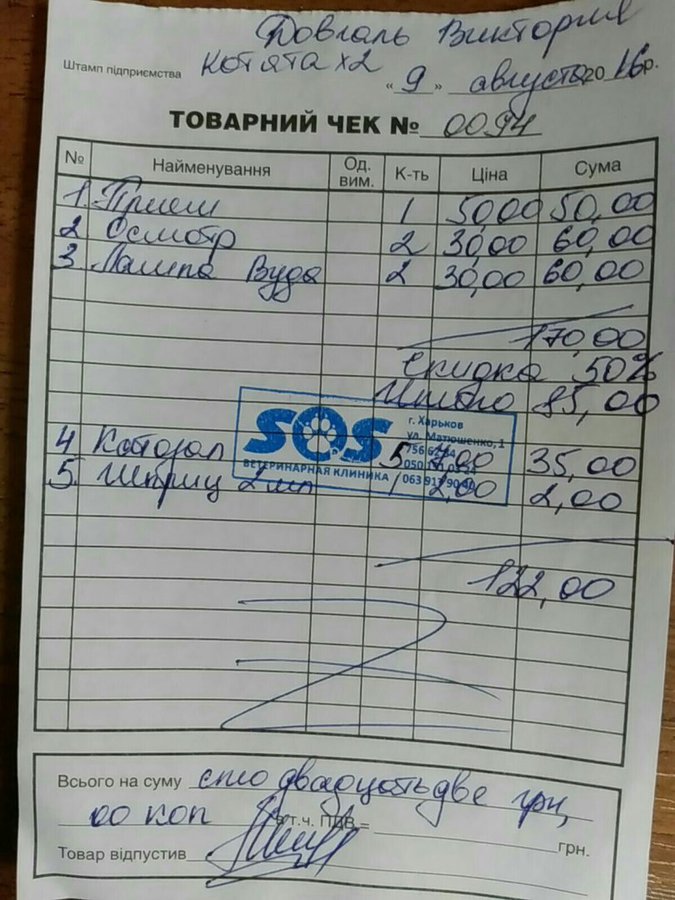 Довгаль Виктория
Штамп підприємства Котята x2
"9" августа 2016р.
ТОВАРНИЙ ЧЕК № 0094
№ Найменування Од. вим. К-ть Ціна Сума
1 Прием 1 50,00 50,00
2 Осмотр 2 30,00 60,00
3 Лампа Вуда 2 30,00 60,00
170,00
Скидка 50%
Итого 85,00
SOS
ВЕТЕРИНАРНАЯ КЛИНИКА
г. Харьков
ул. Матюшенко, 1
4 Катозал 5 7,00 35,00
5 Шприц 2 мл 1 2,00 2,00
122,00
Всього на суму сто двадцать две грн
00 коп в т.ч. ПДВ = грн.
Товар відпустив